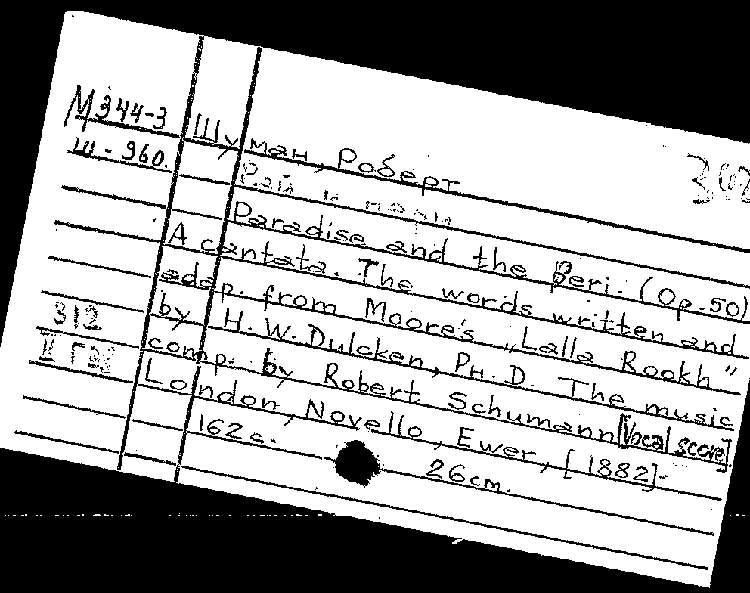 М344-3
Шуман, Роберт
Ш-960.
Рай и пери
Paradise and the Peri. (Op.50)
A cantata. The words written and
adap. from Moore's „Lalla Rookh"
by H.W.Dulcken, PH.D. The music
comp. by Robert Schumann [Vocal score]
London, Novello, Ewer, [1882].
162 с. 26cm.
312